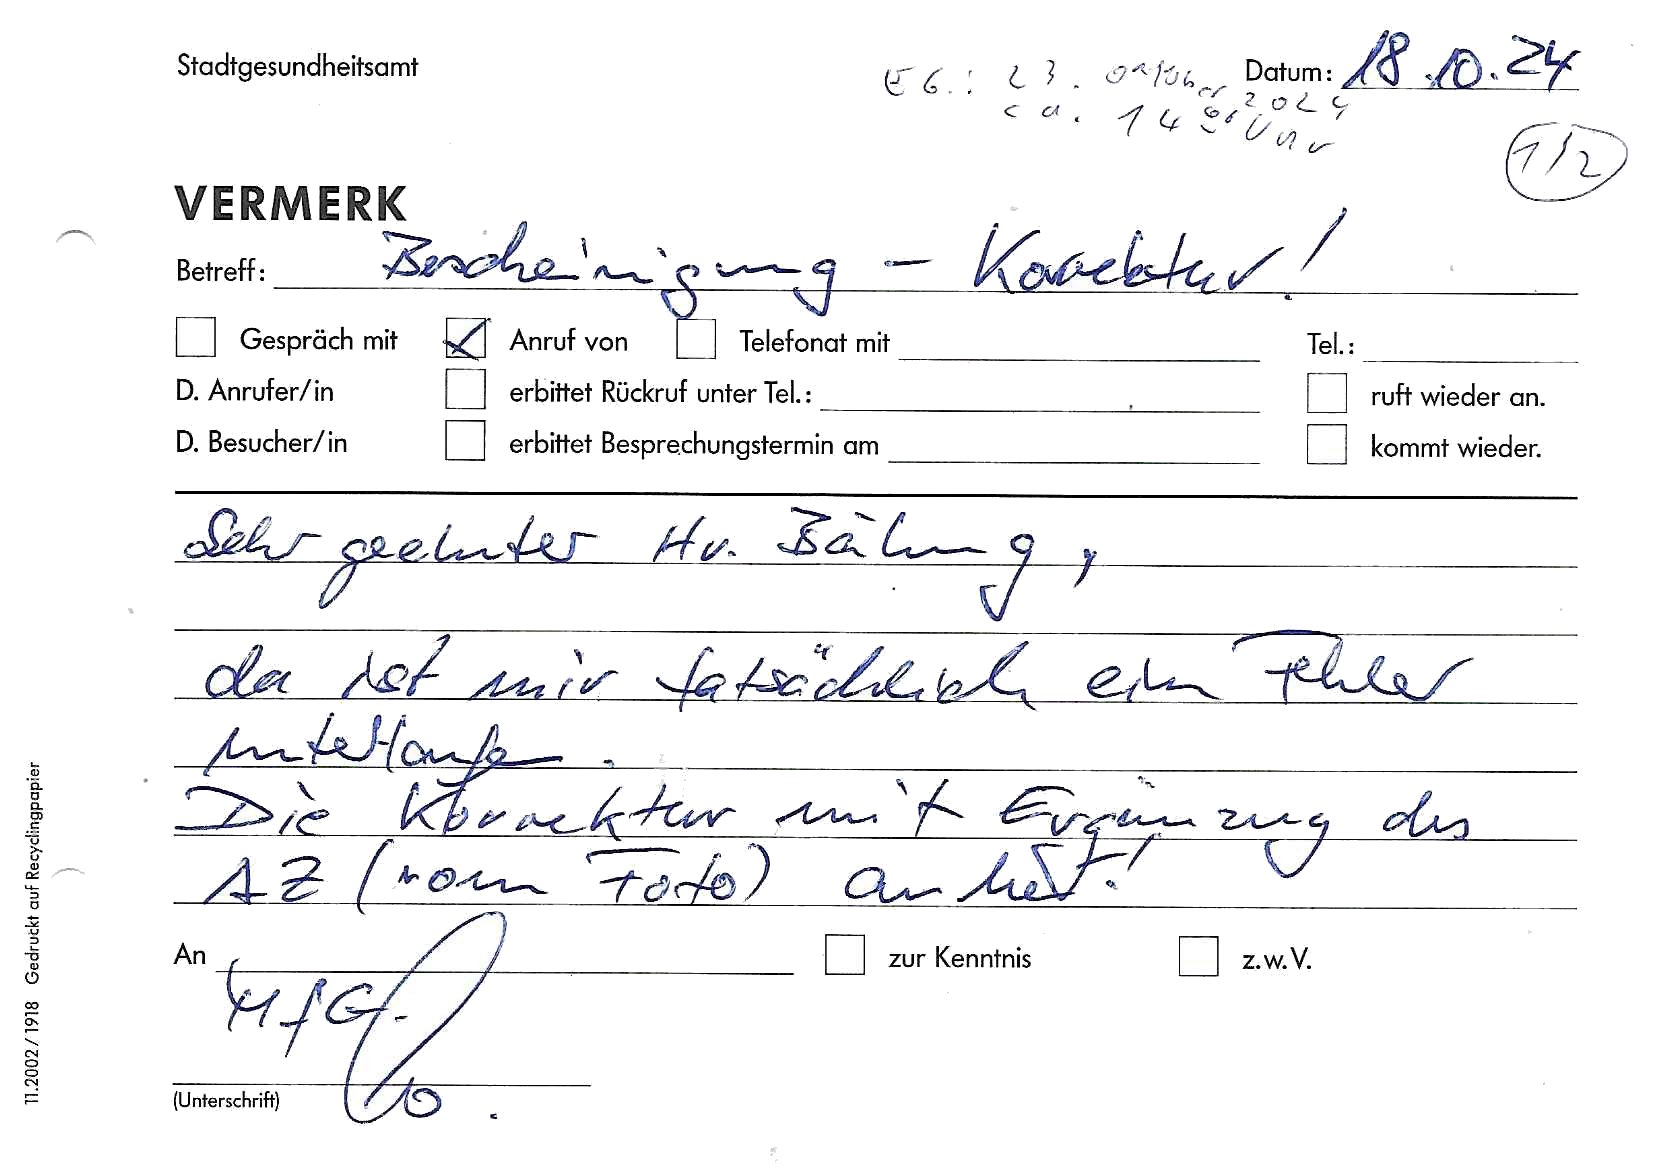 Stadtgesundheitsamt
EG.: 23. Oktober 2024
ca. 14 00 Uhr
Datum: 18.10.24
1/2
VERMERK
Betreff: Bescheinigung – Korrektur!
Gespräch mit Anruf von Telefonat mit Tel.:
D. Anrufer/in erbittet Rückruf unter Tel.: ruft wieder an.
D. Besucher/in erbittet Besprechungstermin am kommt wieder.
Sehr geehrter Hr. Bähring,
da ist mir tatsächlich ein Fehler
unterlaufen.
Die Korrektur mit Ergänzung des
AZ (vom Foto) anbei!
An zur Kenntnis z.w.V.
MfG.
(Unterschrift)
11.2002/1918 Gedruckt auf Recyclingpapier